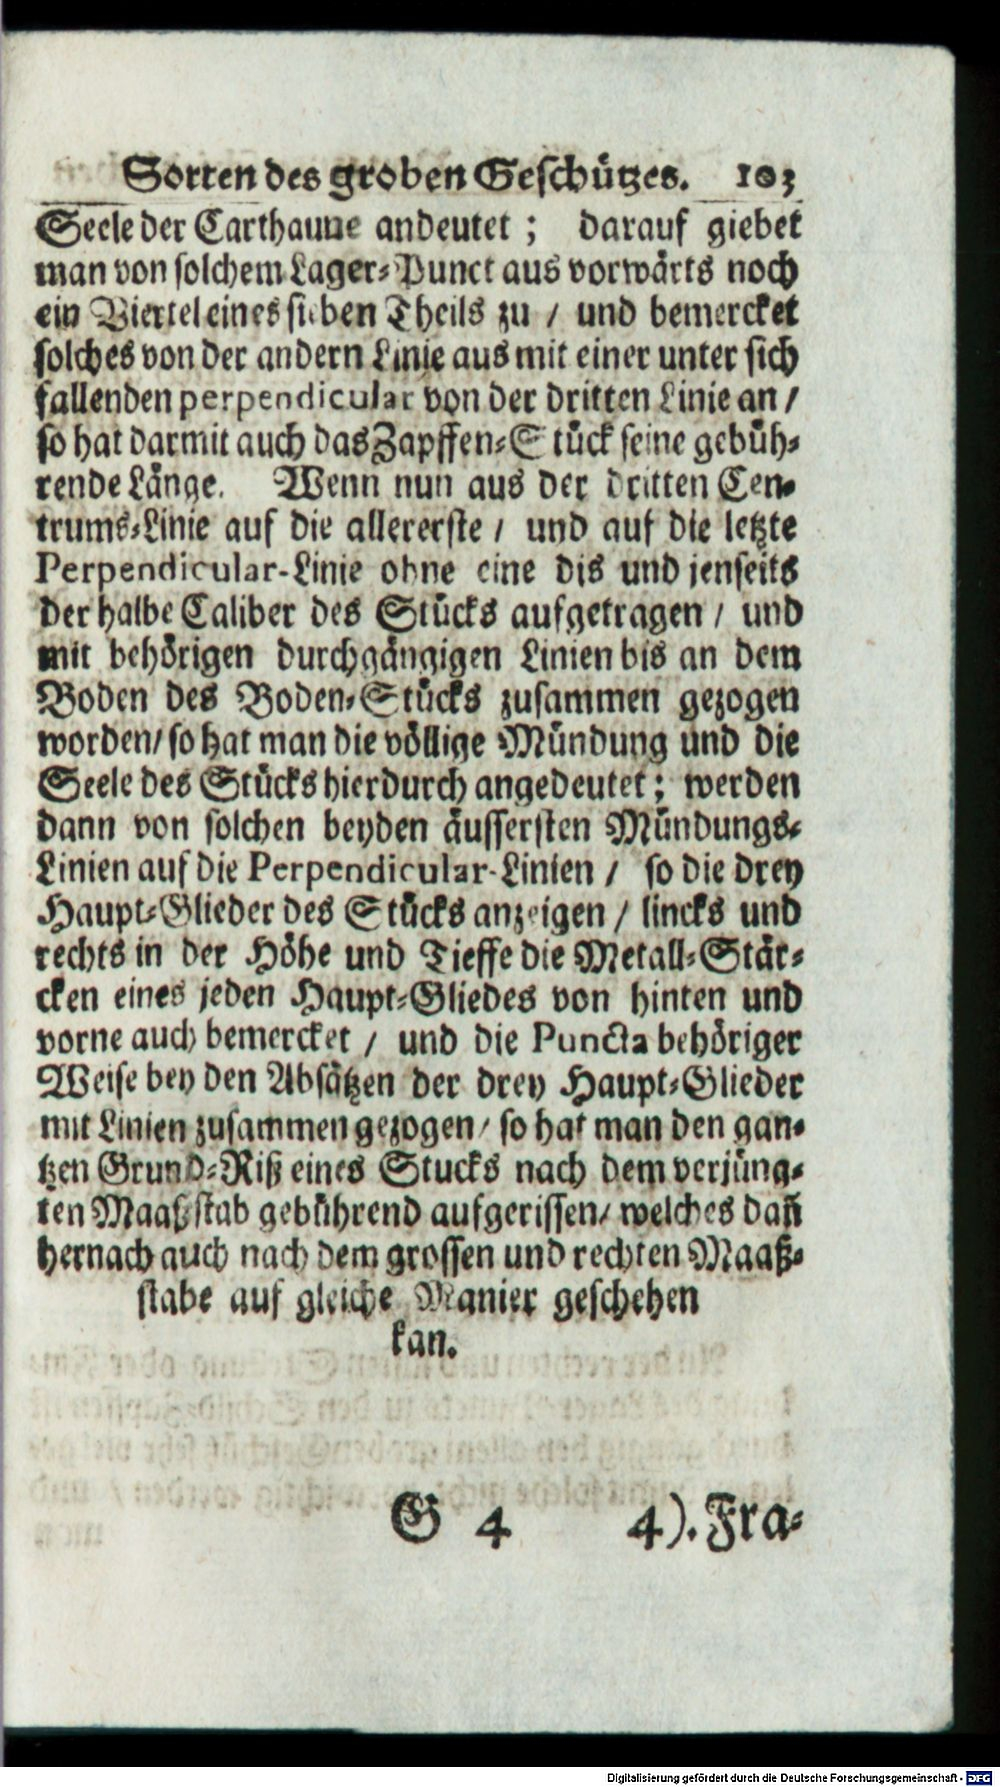 Sorten des groben Geschützes. 103
Seele der Carthaune andeutet ; darauf giebet
man von solchem Lager-Punct aus vorwärts noch
ein Viertel eines sieben Theils zu / und bemercket
solches von der andern Linie aus mit einer unter sich
fallenden perpendicular von der dritten Linie an /
so hat darmit auch das Zapffen-Stück seine gebüh-
rende Länge. Wenn nun aus der dritten Cen-
trums-Linie auf die allererste / und auf die letzte
Perpendicular-Linie ohne eine dis und jenseits
der halbe Caliber des Stücks aufgetragen / und
mit behörigen durchgängigen Linien bis an dem
Boden des Boden-Stücks zusammen gezogen
worden/ so hat man die völlige Mündung und die
Seele des Stücks hierdurch angedeutet ; werden
dann von solchen beyden äussersten Mündungs-
Linien auf die Perpendicular-Linien / so die drey
Haupt-Glieder des Stücks anzeigen / lincks und
rechts in der Höhe und Tieffe die Metall-Stär-
cken eines jeden Haupt-Gliedes von hinten und
vorne auch bemercket / und die Puncta behöriger
Weise bey den Absätzen der drey Haupt-Glieder
mit Linien zusammen gezogen / so hat man den gan-
tzen Grund-Riß eines Stucks nach dem verjüng-
ten Maaßstab gebührend aufgerissen/ welches dañ
hernach auch nach dem grossen und rechten Maaß-
stabe auf gleiche Manier geschehen
kan.
G 4 4). Fra-
Digitalisierung gefördert durch die Deutsche Forschungsgemeinschaft - DFG